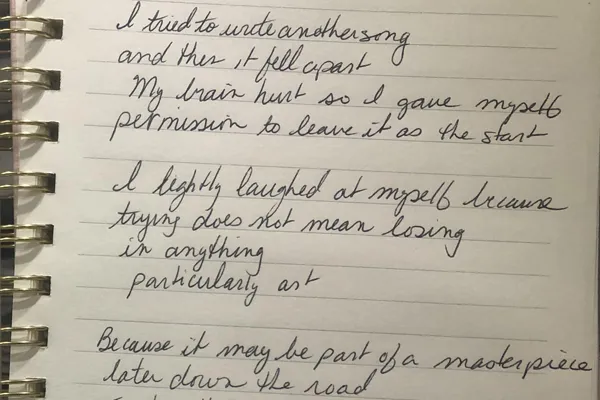 I tried to write another song
and then it fell apart
My brain hurt so I gave myself
permission to leave it as the start
I lightly laughed at myself because
trying does not mean losing
in anything
particularly art
Because it may be part of a masterpiece
later down the road